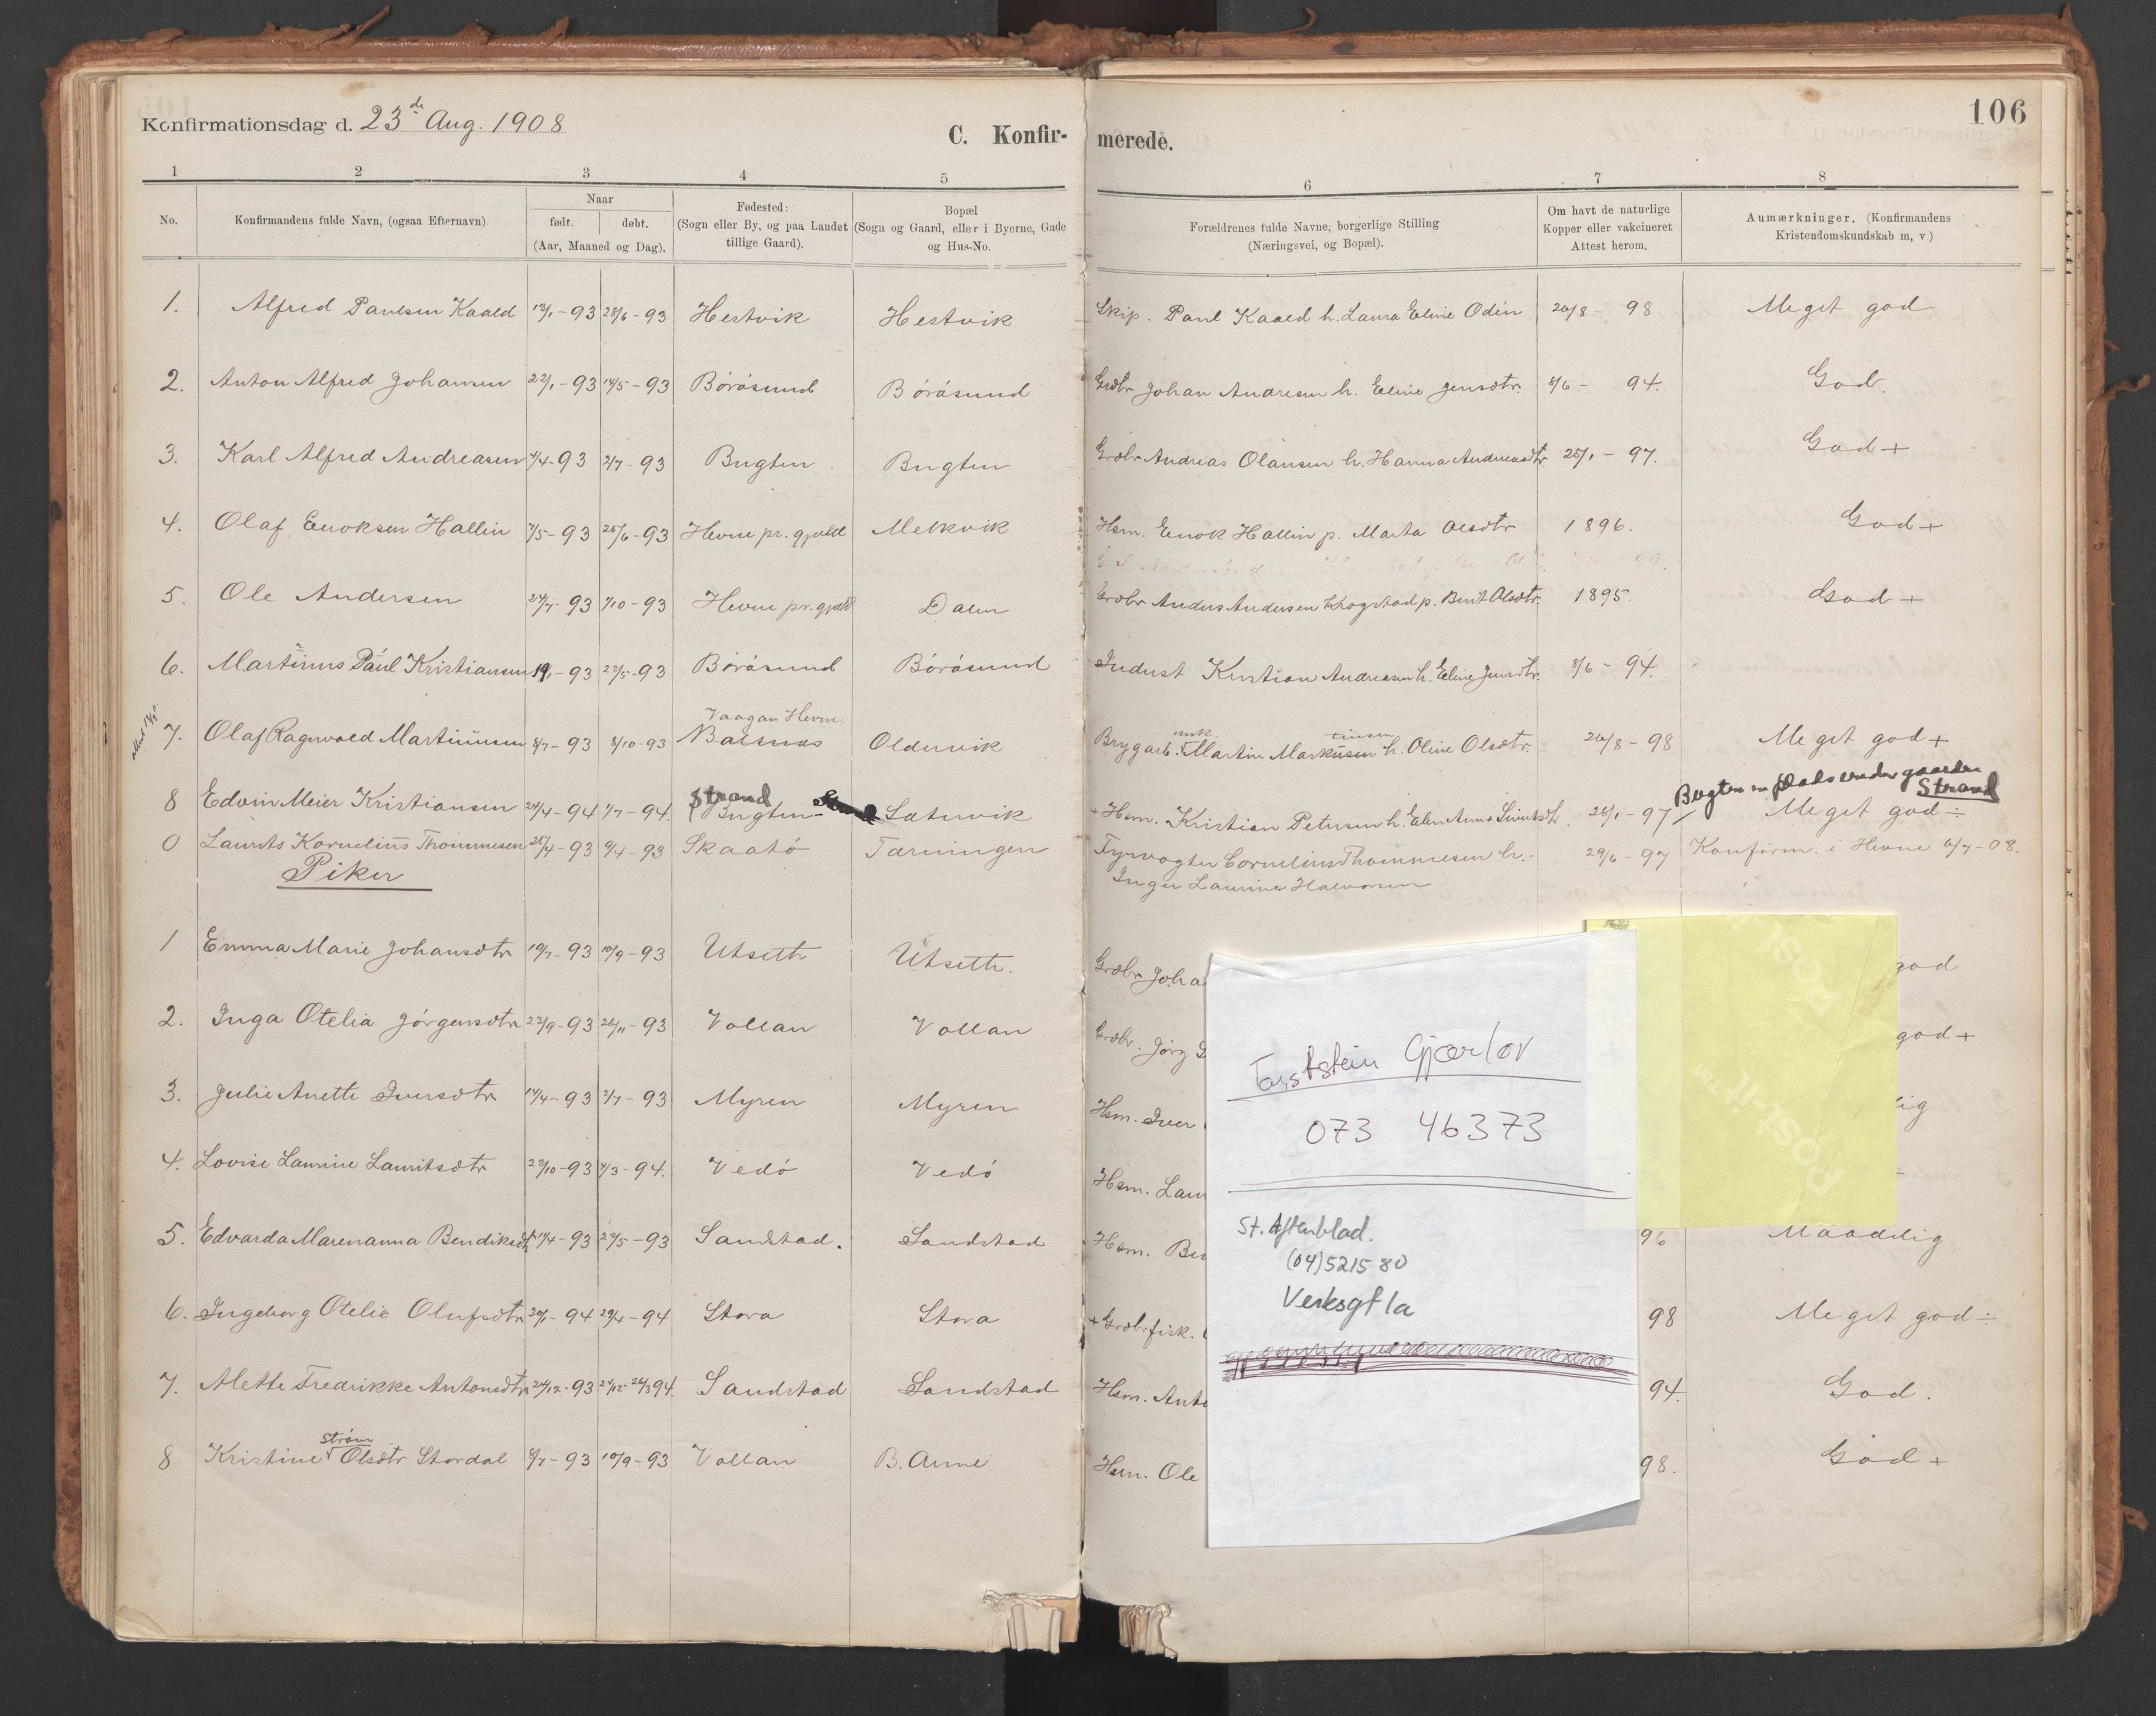 Konfirmationsdag d. 23de Aug. 1908
C. Konfir-
merede.
106
1 2 3 4 5 6 7 8
No.
Konfirmandens fulde Navn, (ogsaa Efternavn)
Naar
født. døbt.
(Aar, Maaned og Dag).
Fødested:
(Sogn eller By, og paa Landet
tillige Gaard).
Bopæl
(Sogn og Gaard, eller i Byerne, Gade
og Hus-No.
Forældrenes fulde Navne, borgerlige Stilling
(Næringsvei, og Bopæl).
Om havt de naturlige
Kopper eller vakcineret
Attest herom.
Anmærkninger. (Konfirmandens
Kristendomskundskab m, v)
1. Alfred Paulsen Kaald 12/1-93 28/6-93 Hestvik Hestvik Skip. Paul Kaald h. Laura Eline Odin 20/8-98 Meget god
2. Anton Alfred Johansen 22/1-93 14/5-93 Börösund Börösund Grdbr Johan Andresen h. Eline Jensdtr. 8/6-94. God.
3. Karl Alfred Andreasen 4/4-93 2/7-93 Bugten Bugten Grdbr Andreas Olausen h. Hanna Andreasdtr 25/1-97. God+
4. Olaf Enoksen Hallin 7/5-93 25/6-93 Hevne pr. gjæld Melkvik Hsm. Enok Hallin p. Marta Olsdtr 1896. God+
5. Ole Andersen 24/7-93 1/10-93 Hevne pr. gjæld Dalen Grdbr Anders Andersen Krogstad p. Berit Olsdtr. 1895. God+
6. Martinus Paul Kristiansen 19/1-93 22/5-93 Börösund Börösund Indust Kristian Andreasen h. Eline Jensdtr. 8/6-94.
Vaagan Hevne
7. Olaf Ragnvald Martinusen 8/7-93 8/10-93 Balsnes Oldervik Brygarb. Martin Markusen h. Oline Olsdtr. 20/8-98 Meget god+
Bugten en plads under gaarden
Strand
8 Edvin Meier Kristiansen 24/4-94 1/7-94. Strand Bugten Sætervik +Hsm. Kristian Petersen h. Elen Anna Sivertsdtr. 25/1-97 Meget god÷
0 Laurits Kornelius Thommesen 25/4-93 9/4-93 Skaatö Tærningen Fyrvogter Cornelius Thommesen h. 29/6-97 Konfirm. i Hevne 6/7-08.
Inger Laurine Halvorsen
Piker
1 Emma Marie Johansdtr 19/7-93 10/9-93 Utseth Utseth. Grdbr Joha god
2. Inga Otelia Jørgensdtr 22/9-93 26/11-93 Vollan Vollan Grdbr. Jørg god+
3. Julie Anette Iversdtr 14/4-93 2/7-93 Myren Myren Hsm. Iver lig
4. Lovise Laurine Lauritsdtr 22/10-93 4/3-94. Vedö Vedö Hsm. Laur
5. Edvarda Marenanna Bendiksdtr 14/4-93 22/5-93 Sandstad. Sandstad Hsm. Ben 96 Maadelig
6. Ingeborg Otelie Olufsdtr 30/1-94 29/4-94 Stora Stora +Grdbr fisk. 98 Meget god÷
7. Alette Fredrikke Antonsdtr 24/12-93 24/12-26/3 94. Sandstad Sandstad Hsm. Anto 94. God.
Ström
8 Kristine Olsdtr Stordal 6/7-93 10/9-93 Vollan B. Arne Hsm. Ole 98. God+
Torststein Gjærlov
073 46373
St. Aftenblad.
(04) 5215 80
Verksgt 1a
Post-it™